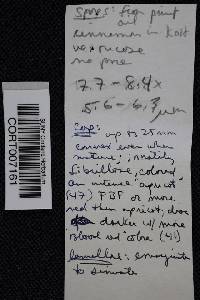 Spores: from print
in Koh
verrucose
no pore
7.7 - 8.4 x
5.6 - 6.3 µm
Cap: up to 25 mm
convex even when
mature; innately
fibrillose, colored
an intense "apricot"
(47) FBF or more
red than apricot; disc
darker w/ more
"blood red" tone (41)
Lamellae: emarginate
to sinuate
CORT007161